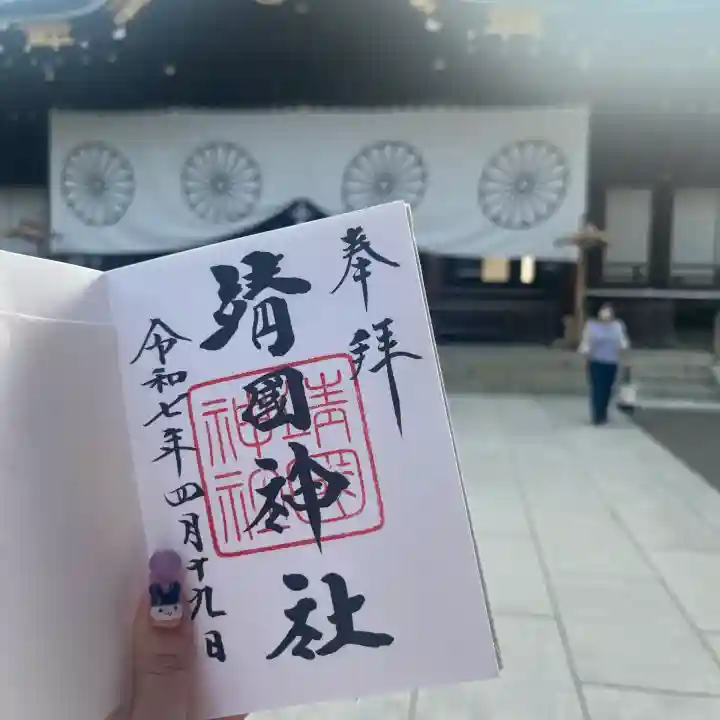 奉拝
靖國神社
靖國
神社
令和七年四月十九日